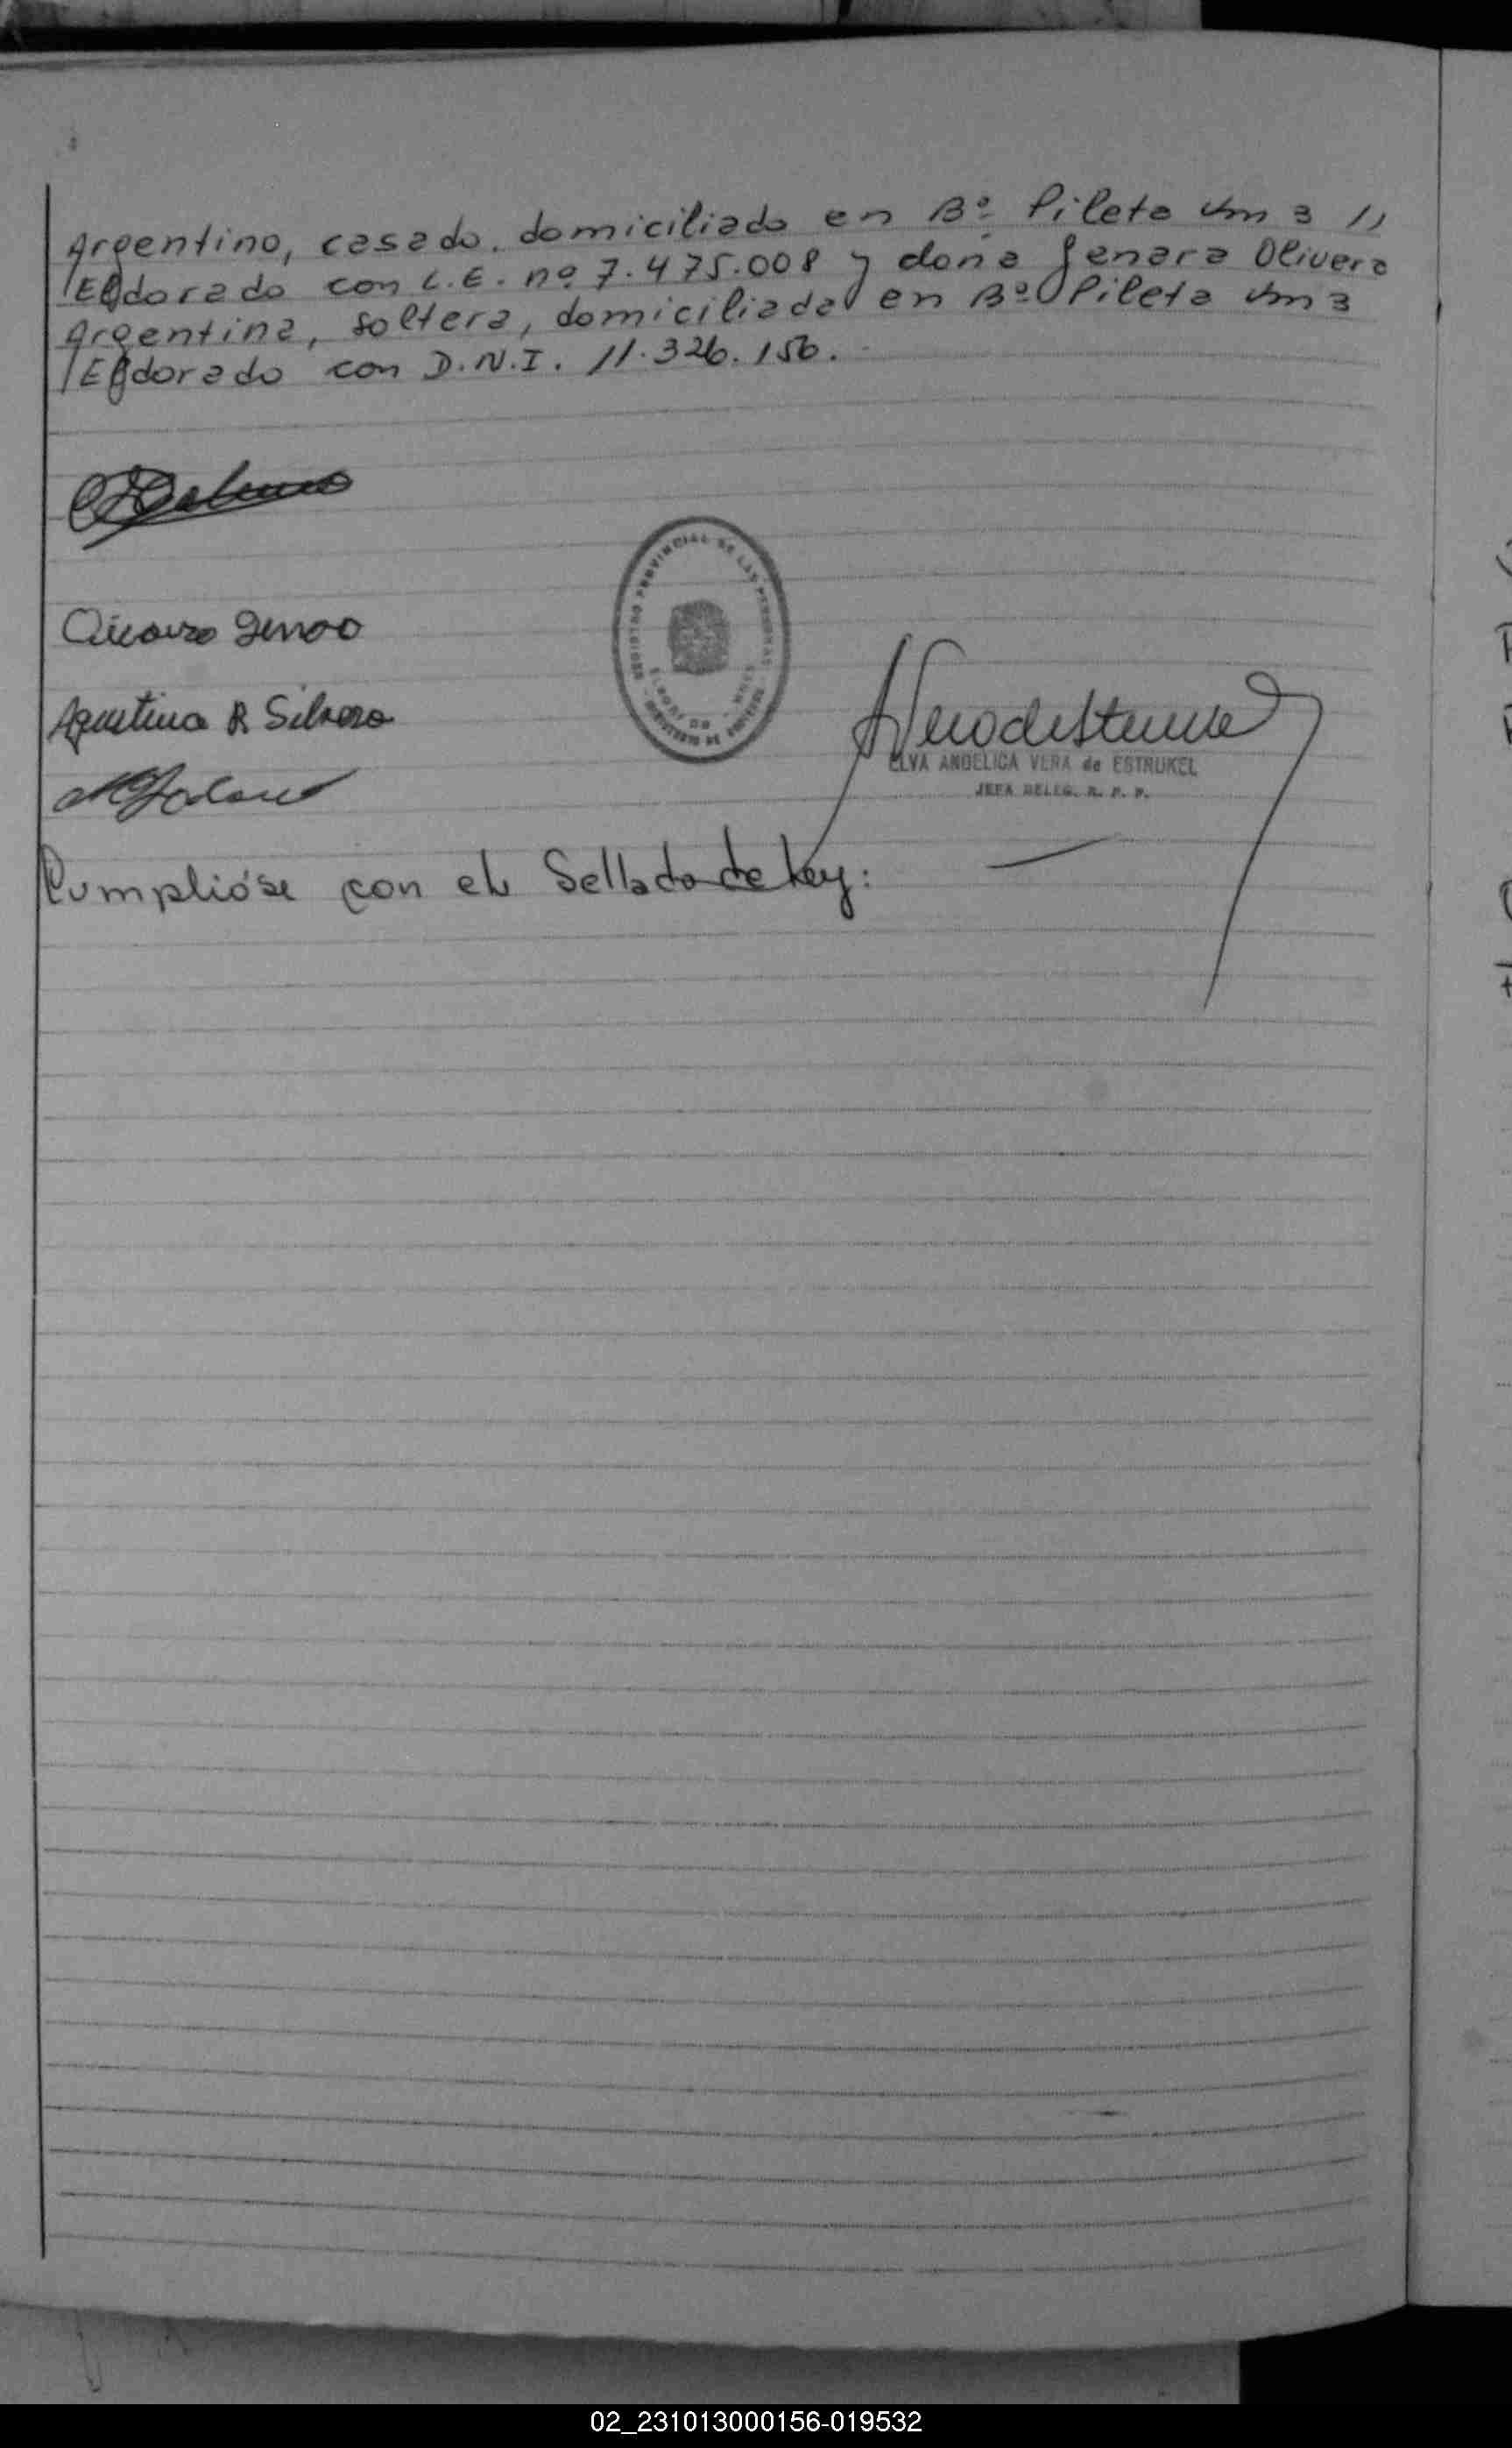 Argentino, casado, domiciliado en Bº Pileta Km 3 //
/Eldorado con L.E. nº 7.475.008 y doña Genara Olivera
Argentina, soltera, domiciliada en Bº Pileta Km 3
/Eldorado con D.N.I. 11.326.156.
Agustina R Silvero
REGISTRO PROVINCIAL DE LAS PERSONAS
ELVA ANGELICA VERA de ESTRUKEL
JEFA DELEG. R. P. P.
Cumplióse con el Sellado de Ley:
02_231013000156-019532